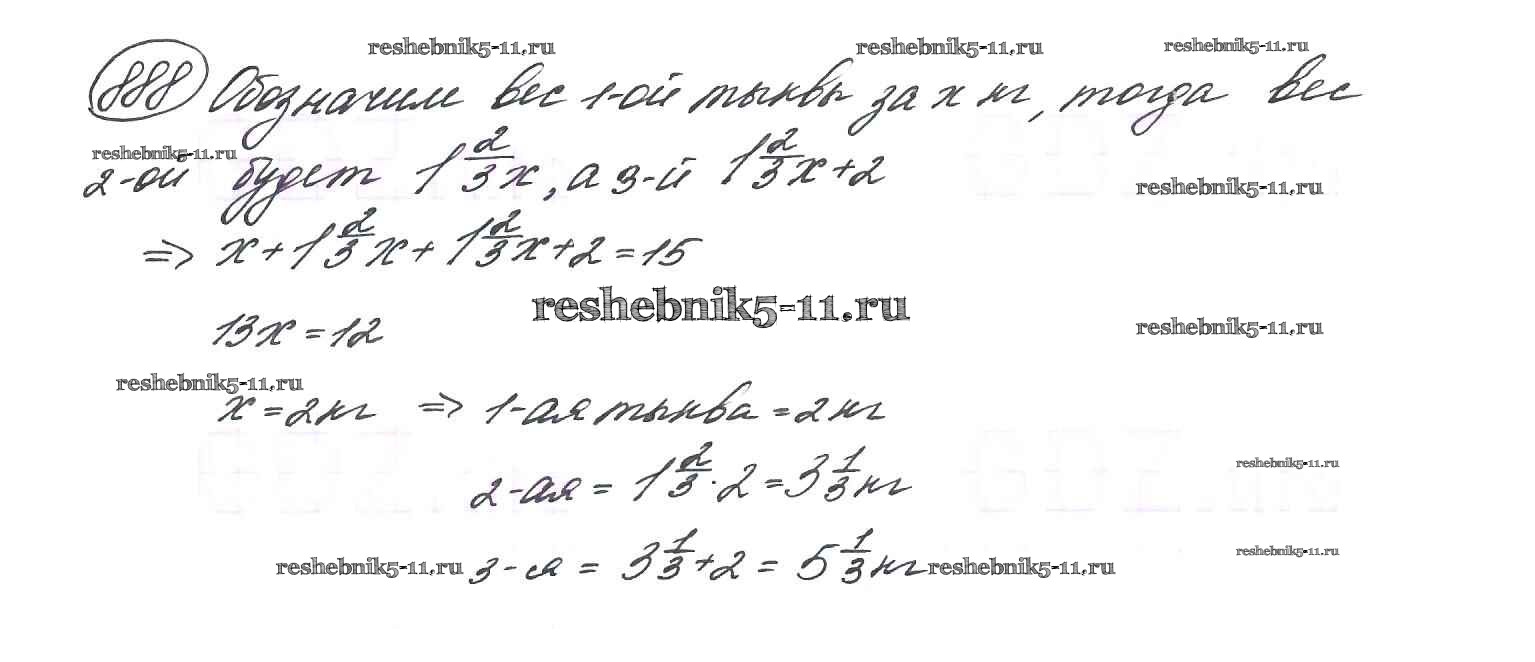 reshebnik5-11.ru reshebnik5-11.ru reshebnik5-11.ru
888 Обозначим вес 1-ой тыквы за x кг, тогда вес
reshebnik5-11.ru
2-ой будет 1 2/3 x, а 3-й 1 2/3 x + 2
reshebnik5-11.ru
=> x + 1 2/3 x + 1 2/3 x + 2 = 15
reshebnik5-11.ru
13x = 12
reshebnik5-11.ru
reshebnik5-11.ru
x = 2 кг => 1-ая тыква = 2 кг
reshebnik5-11.ru
2-ая = 1 2/3 · 2 = 3 1/3 кг
reshebnik5-11.ru
reshebnik5-11.ru 3-я = 3 1/3 + 2 = 5 1/3 кг reshebnik5-11.ru